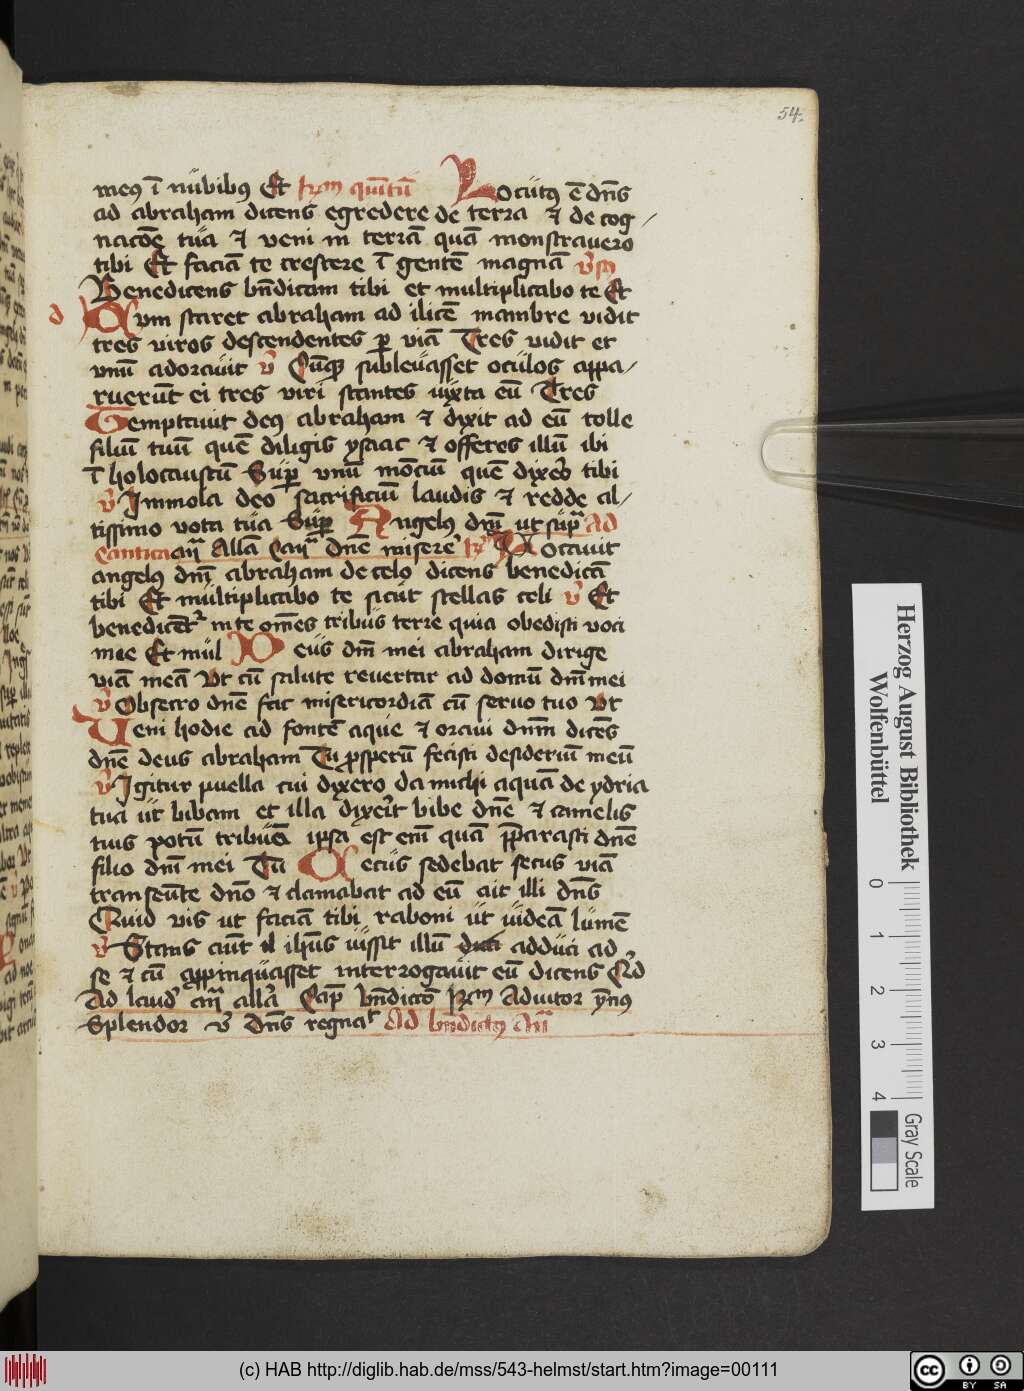 54.
meꝯ ī nubibꝯ Et quītū Locutꝯ ē dn̄s
ad abraham dicens egredere de terra ⁊ de cog
nacōe tua ⁊ veni in terrā quā monstravero
tibi Et faciā te crescere ī gentē magnā
Benedicens bn̄dicam tibi et multiplicabo te Et
d Cum staret abraham ad ilicē mambre vidit
tres viros descendentes ꝑ viā Tres vidit et
vnū adoravit ℣ Cūqꝫ sublevasset oculos appa
ruerūt ei tres viri stantes iuxta eū Tres
Temptavit deꝯ abraham ⁊ dixit ad eū tolle
filiū tuū quē diligis ysaac ⁊ offeres illū ibi
ī holocaustū Suꝑ vnū mōciū quē dixero tibi
℣ Immola deo sacrificiū laudis ⁊ redde al
tissimo vota tua Suꝑ Angelꝯ dn̄i ut supͣ Ad
Cantica an̄ Alla Capͣ Dn̄e miserē ℟ Vocavit
angelꝯ dn̄i abraham de celo dicens benedicā
tibi Et multiplicabo te sicut stellas celi ℣ Et
benedicēt᷑ in te om̄es tribus terre quia obedisti voci
mee Et mul Deus dn̄i mei abraham dirige
viā meā Vt cū salute revertar ad domū dn̄i mei
℣ Obsecro dn̄e fac misericordiā cū servo tuo Vt
Veni hodie ad fontē aque ⁊ oravi dn̄m dicēs
dn̄e deus abraham Tu ꝓsperū fecisti desideriū meū
℣ Igitur puella cui dixero da michi aquā de ydria
tua ut bibam et illa dixerit bibe dn̄e ⁊ camelis
tuis potū tribuā ipsa est em̄ quā p̄parasti dn̄e
filio dn̄i mei Tu Cecus sedebat secus viā
transeūte dn̄o ⁊ clamabat ad eū ait illi dn̄s
Quid vis ut faciā tibi raboni ut videā lumē
℣ Stans aūt ih̄us iussit illū adduci ad
se ⁊ cū appinquasset interrogavit eū dicens Qͥd
Ad laudꝭ an̄ alla Cap̄ bn̄dictō Adiutor ẏnꝯ
Splendor ℣ Dn̄s regnaͭ Ad bn̄dictꝯ an̄
Herzog August Bibliothek
Wolfenbüttel
0 1 2 3 4
Gray Scale
(c) HAB http://diglib.hab.de/mss/543-helmst/start.htm?image=00111
cc BY SA